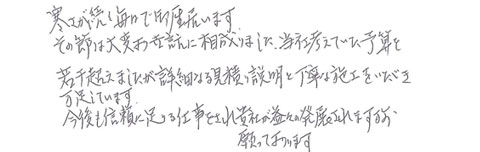 寒さが続く毎日で御座居います。
その節は大変お世話に相成りました。当社考えていた予算を
若干超えましたが詳細なる見積、説明と丁寧な施工をいただき
万足しています。
今後も信頼に足りる仕事をされ貴社が益々の発展されますよう
願っております